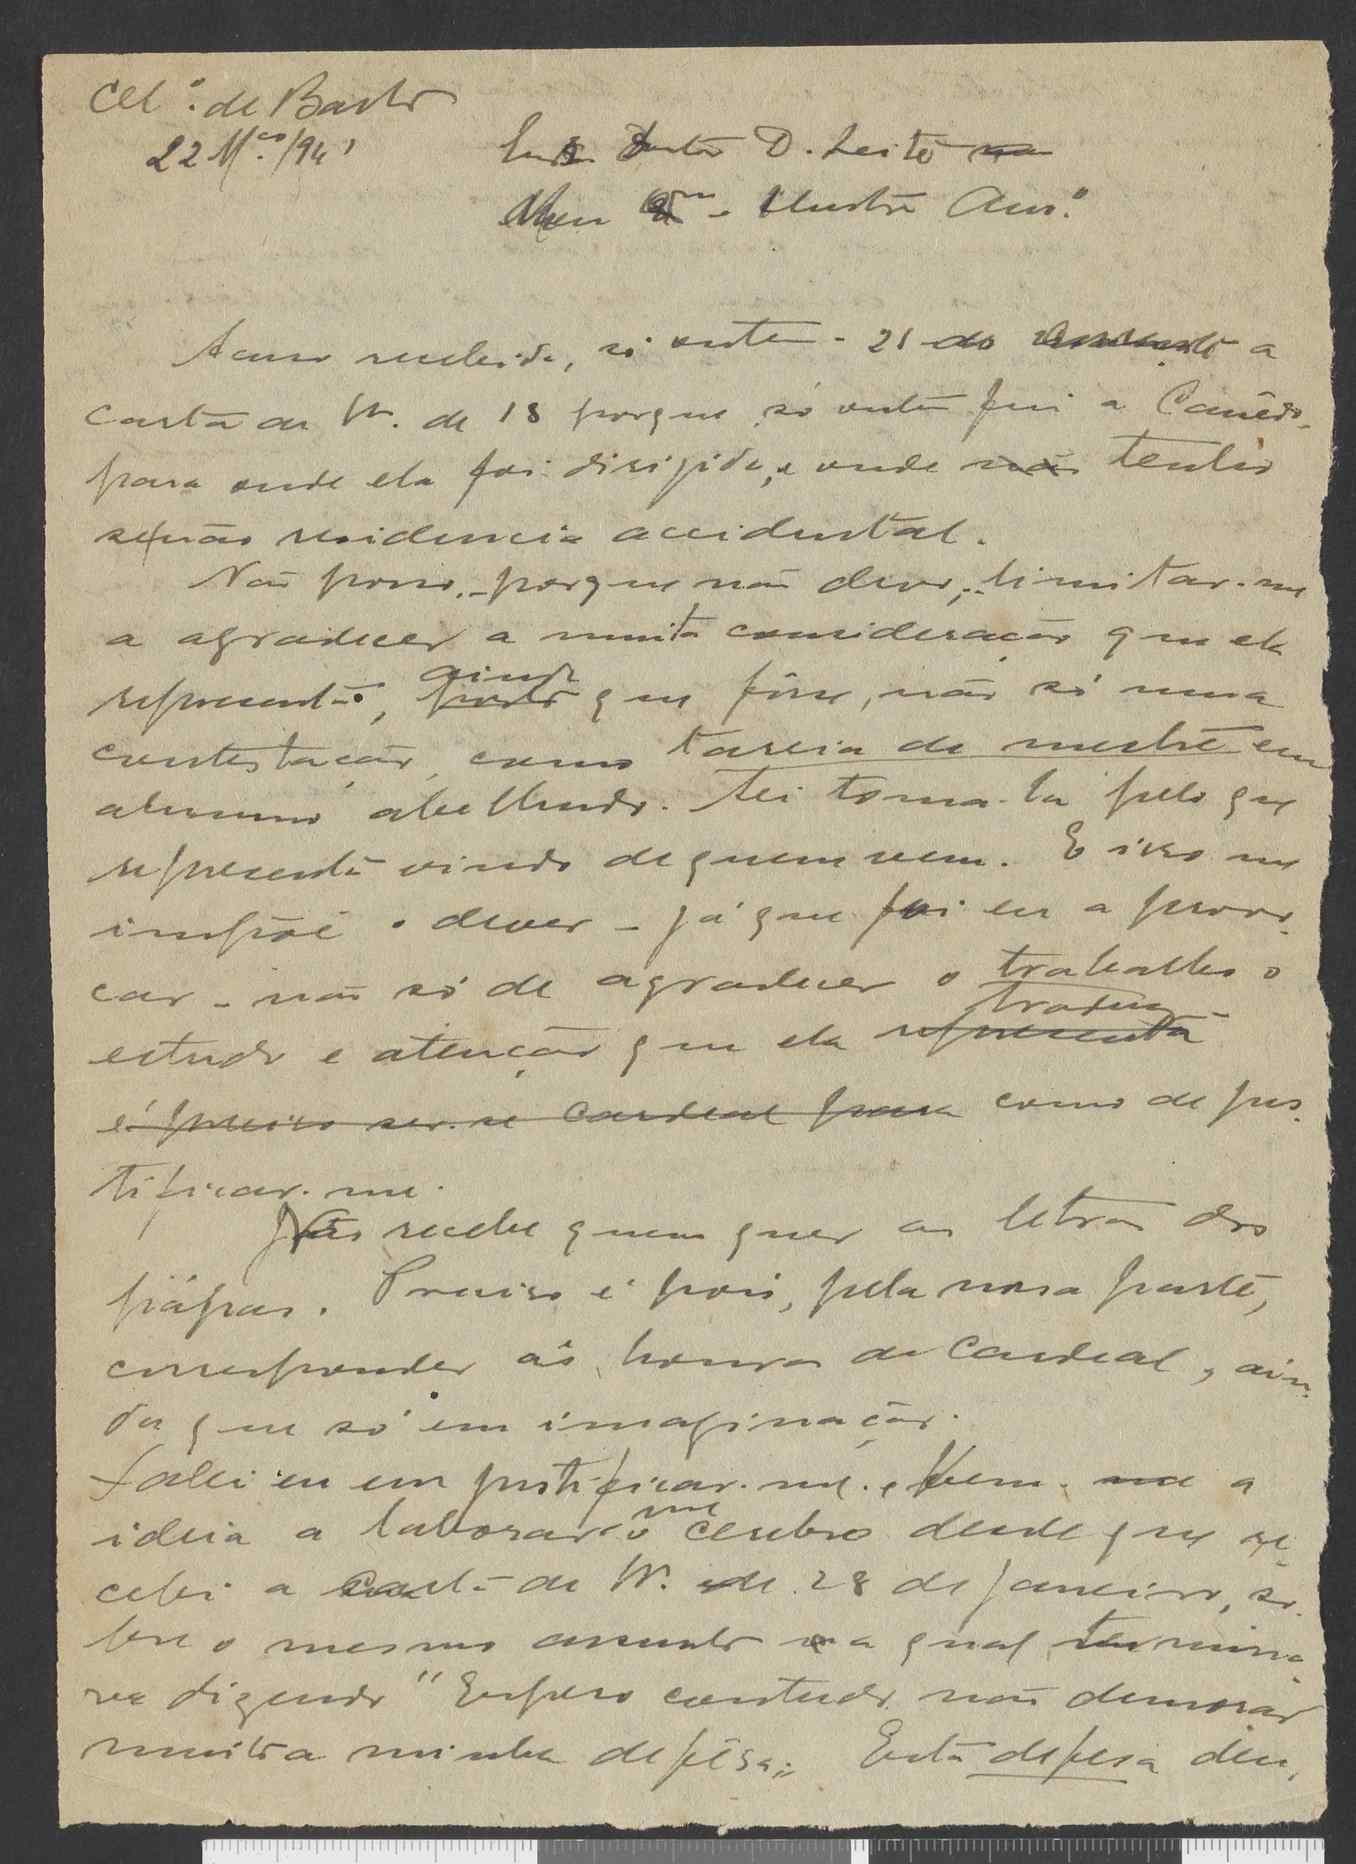 Cel.º de Basto
22 M.ço/941
Doutor D. Leite
Meu Ex.mo e Ilustre Am.º
Acuso recebida, só ontem - 21 do a
carta de V. de 18 porque só ontem fui a Canêdo,
para onde ela foi dirigida, e onde não tenho
senão residencia accidental.
Não posso, - porque não devo, - limitar-me
a agradecer a muita consideração que ela
representa, ainda que fôsse, não só uma
contestação, como tareia de mestre em
alumno abelhudo. Sei toma-la pelo que
representa vindo de quem vem. E isso me
impõe o dever - já que fui eu a provo-
car - não só de agradecer o trabalho o
estudo e atenção que ela representa traduz
é preciso ser-se Cardeal para como de jus-
tificar-me.
Não recebe quem quer as letras dos
pápas. Preciso é pois, pela nossa parte,
corresponder ás honras de Cardeal, ain-
da que só em imaginação.
Falei eu em justificar-me. e bem. a
ideia a laborar-me o cerebro desde que re-
cebi a carta de V. de 28 de janeiro, so-
bre o mesmo assunto a qual termina-
va dizendo "Espero contudo não demorar
muito a minha defêsa". Esta defesa deu,